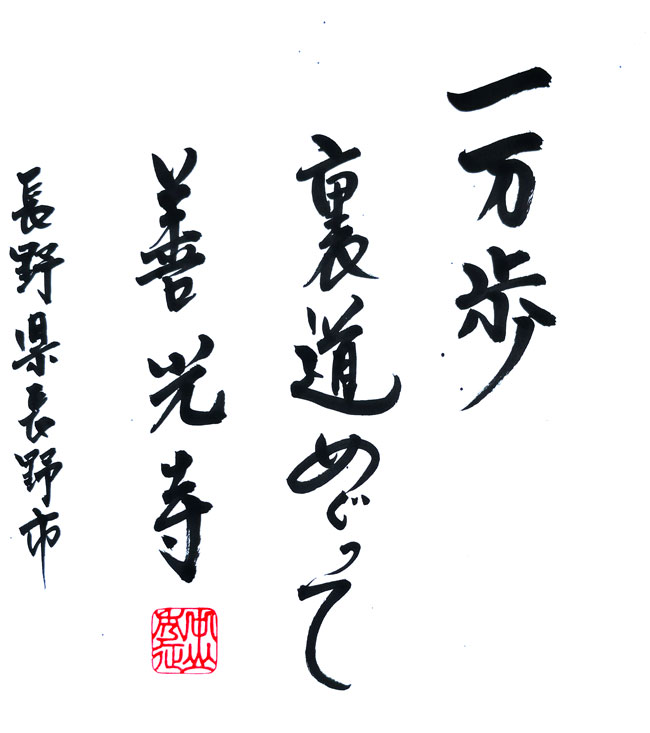 一万歩
裏道めぐって
善光寺
長野県長野市